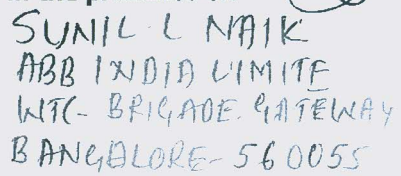 SUNIL L NAIK
ABB INDIA LIMITE
WTC- BRIGADE. GATEWAY
BANGALORE- 560055